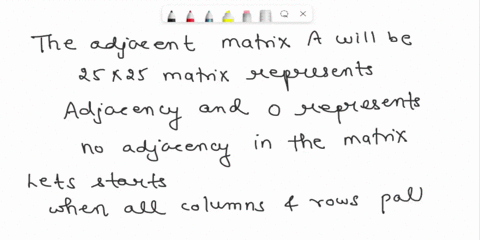 The adjacent matrix A will be
25×25 matrix represents
Adjacency and 0 represents
no adjacency in the matrix
Lets starts
when all columns & rows pall